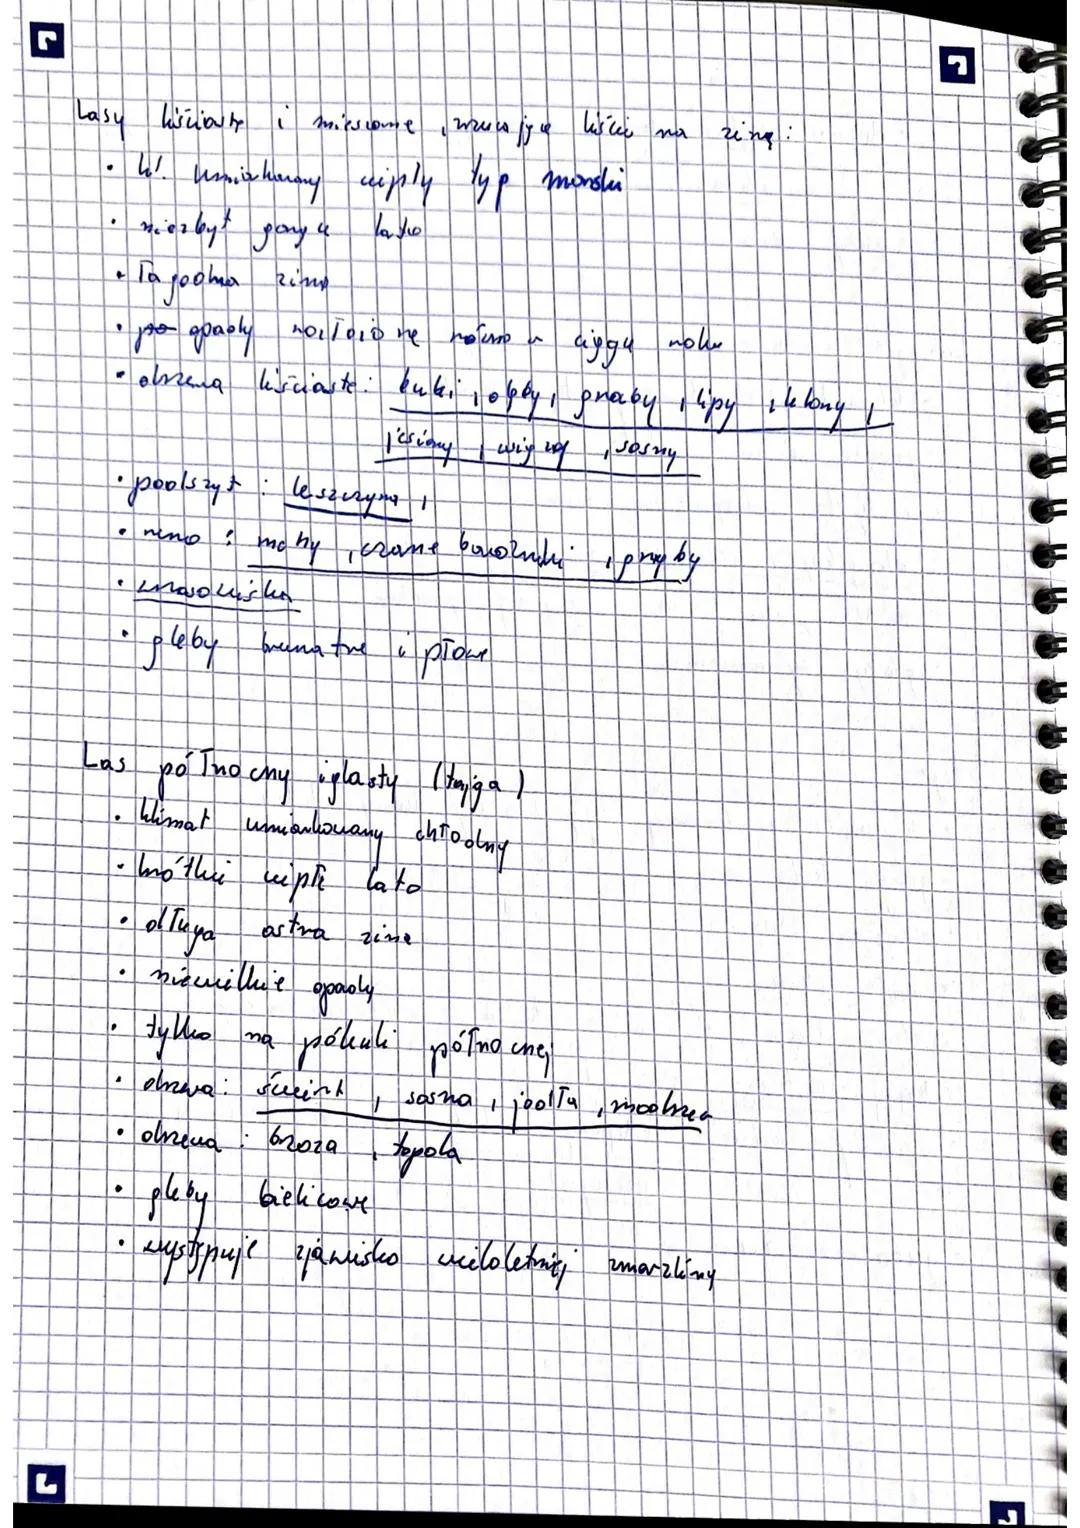 Lasy liściaste i mieszane, zrzucające liście na zimę:
• kl. umiarkowany ciepły typ morski
• niezbyt gorące lato
• łagodna zima
• po opady rozłożone równo w ciągu roku
• drzewa liściaste: buki, dęby, graby, lipy, klony,
jesiony, wiązy, sosny
• podszyt: leszczyna,
• runo: mchy, czarne borówki, grzyby
• wrzosowiska
• gleby brunatne i płowe
Las północny iglasty (tajga)
• klimat umiarkowany chłodny
• krótkie ciepłe lato
• długa ostra zima
• niewielkie opady
• tylko na półkuli północnej
• drzewa: świerk, sosna, jodła, modrzew
• drzewa: brzoza, topola
• gleby bielicowe
• występuje zjawisko wieloletniej zmarzliny